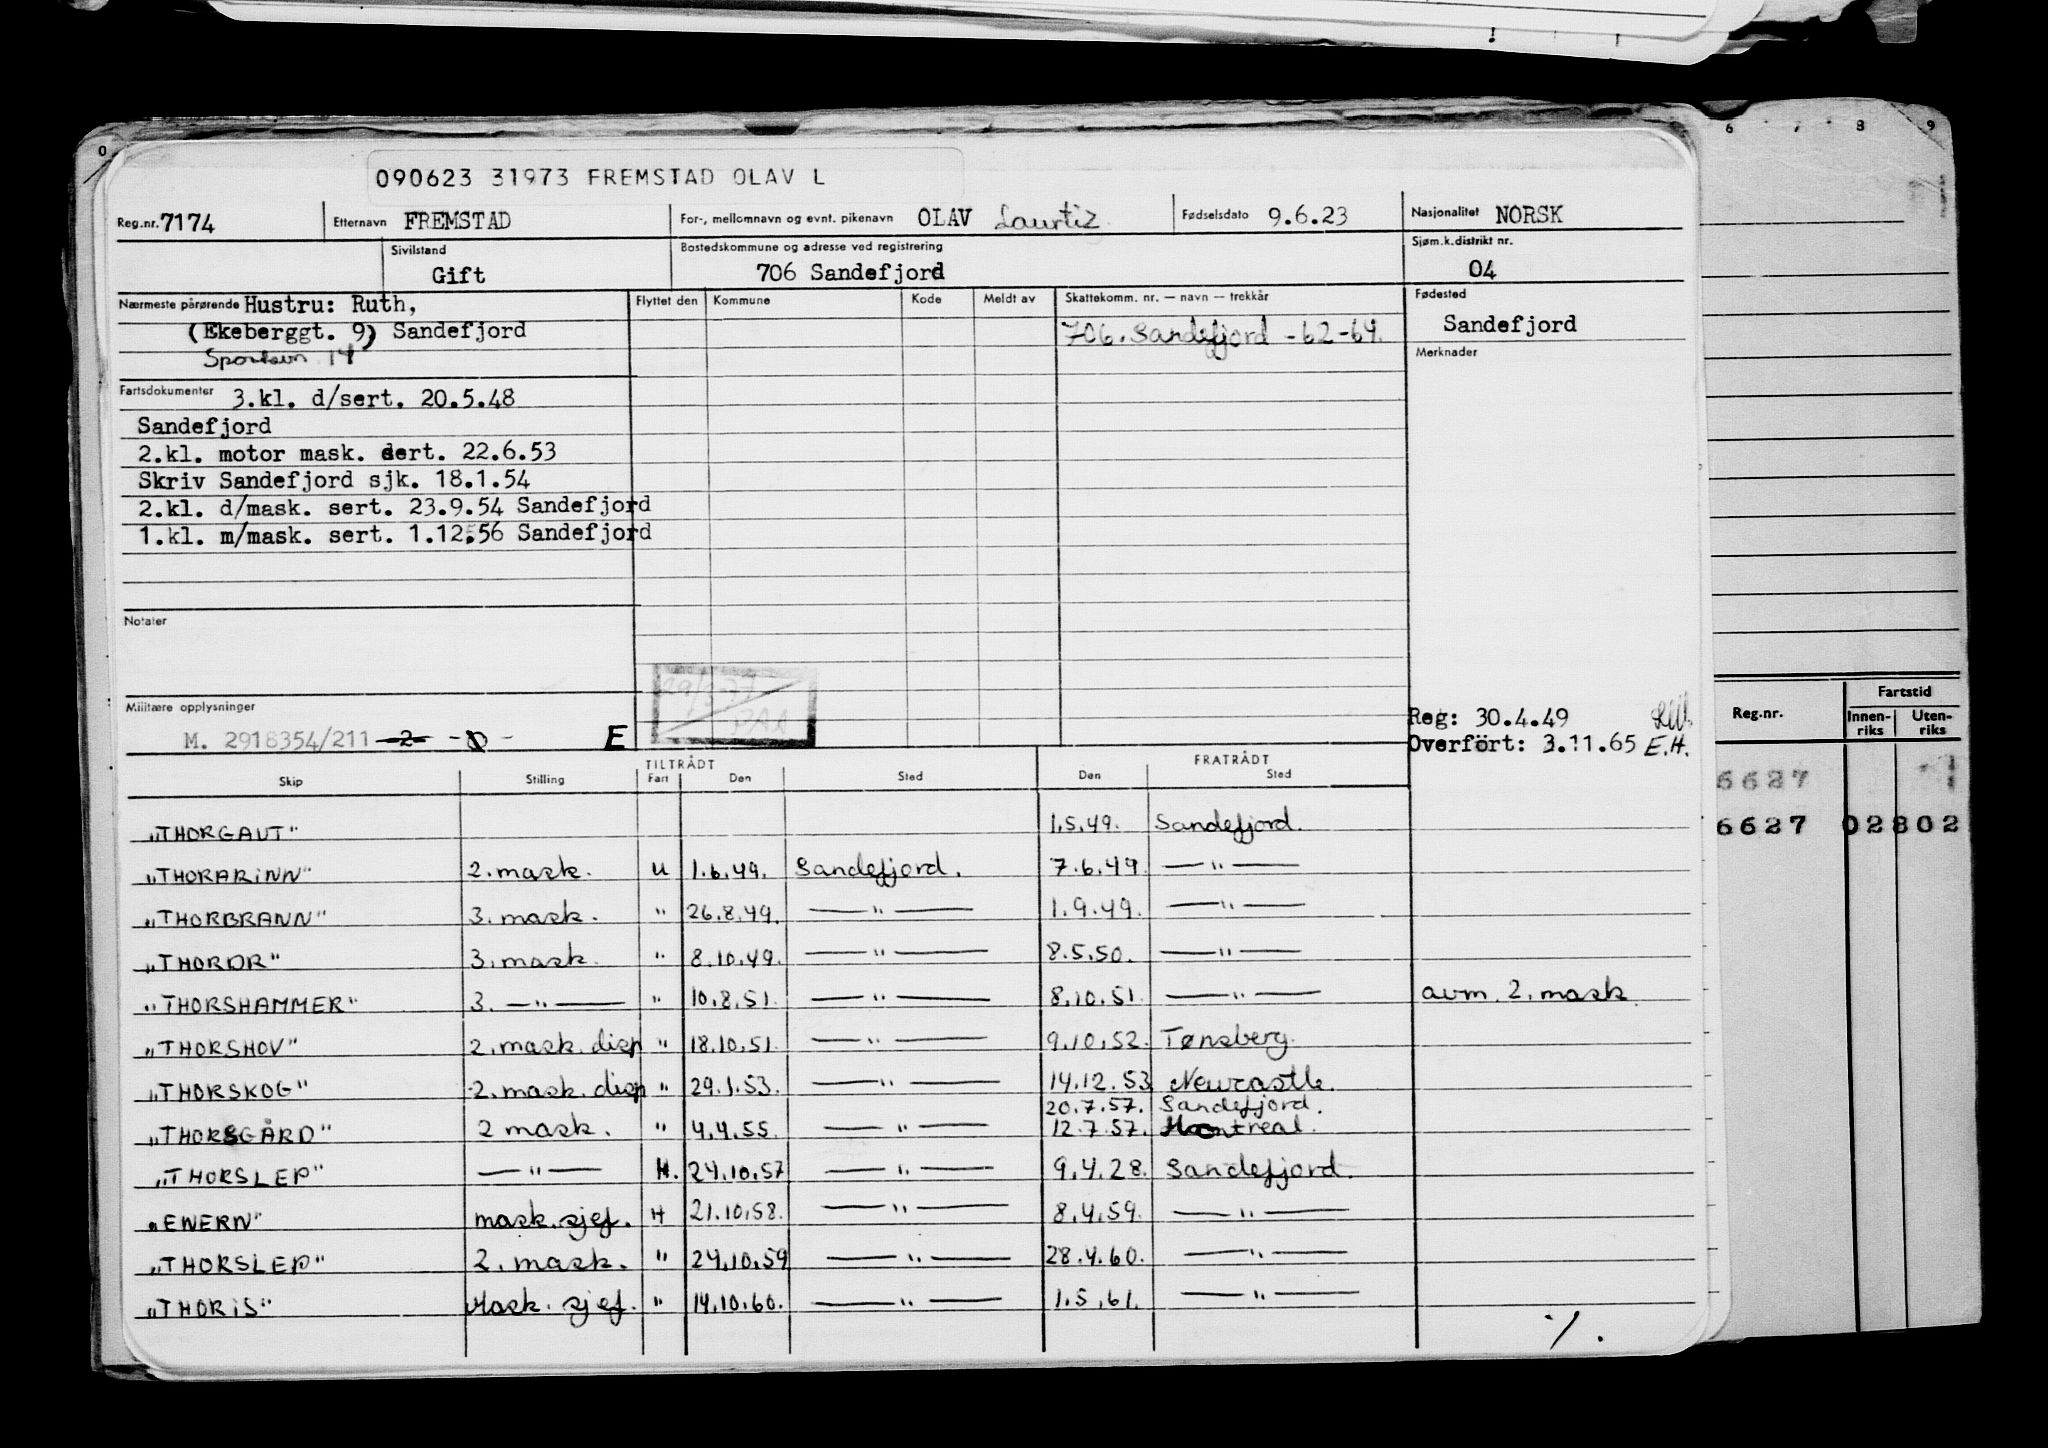 090623 31973 FREMSTAD OLAV L
Reg.nr. 7174 Etternavn FREMSTAD For-, mellomnavn og evnt. pikenavn OLAV Laurtiz Fødselsdato 9.6.23 Nasjonalitet NORSK
Sivilstand Gift Bostedskommune og adresse ved registrering 706 Sandefjord Sjøm.k.distrikt nr. 04
Nærmeste pårørende Hustru: Ruth, Flyttet den Kommune Kode Meldt av Skattekomm. nr. — navn — trekkår Fødested
(Ekeberggt. 9) Sandefjord 706. Sandefjord -62-64. Sandefjord
14 Merknader
Fartsdokumenter 3.kl. d/sert. 20.5.48
Sandefjord
2.kl. motor mask. sert. 22.6.53
Skriv Sandefjord sjk. 18.1.54
2.kl. d/mask. sert. 23.9.54 Sandefjord
1.kl. m/mask. sert. 1.12.56 Sandefjord
Notater
Militære opplysninger Reg: 30.4.49
M. 2918354/211 -2- E Overført: 3.11.65 E.H.
TILTRÅDT FRATRÅDT
Skip Stilling Fart Den Sted Den Sted
"THORGAUT" 1.5.49. Sandefjord.
"THORARINN" 2. mask. U 1.6.49. Sandefjord. 7.6.49 — " —
"THORBRANN" 3. mask. " 26.8.49. — " — 1.9.49. — " —
"THORDR" 3. mask. " 8.10.49. — " — 8.5.50. — " —
"THORSHAMMER" 3. — " — " 10.8.51. — " — 8.10.51. — " — avm. 2. mask.
"THORSHOV" 2. mask. disp " 18.10.51. — " — 9.10.52. Tønsberg.
"THORSKOG" 2. mask. disp " 29.1.53. — " — 14.12.53 Newcastle.
20.7.57. Sandefjord.
"THORSGÅRD" 2 mask. " 4.4.55. — " — 12.7.57. Montreal.
"THORSLEP" — " — H. 24.10.57 — " — 9.4.28. Sandefjord.
"ENERN" mask. sjef. H 21.10.58. — " — 8.4.59. — " —
"THORSLEP" 2. mask. " 24.10.59 — " — 28.4.60. — " —
"THORIS" Mask. sjef. " 14.10.60. — " — 1.5.61. — " —
·/.
0
6 7 8 9
Reg.nr. Fartstid
Innen-riks Uten-riks
6627
6627 02802